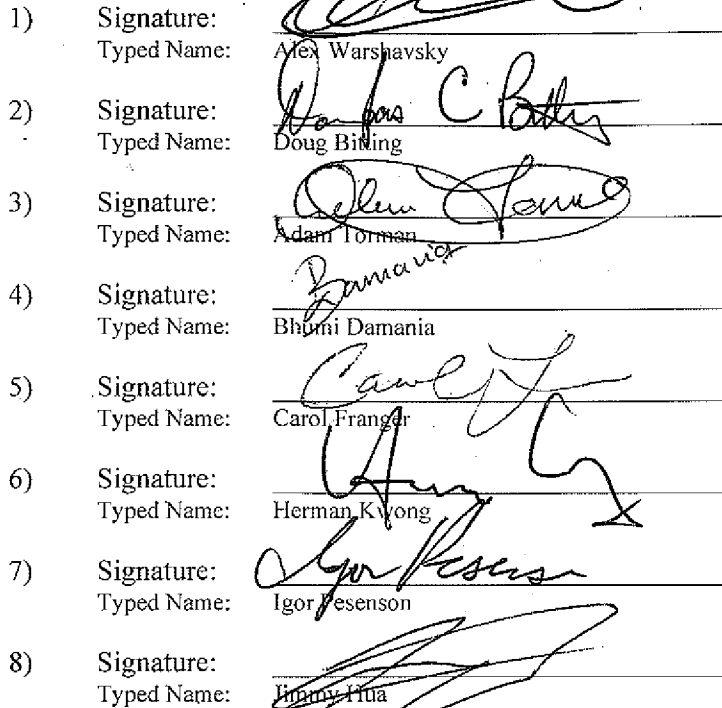 1) Signature:
Typed Name: Alex Warshavsky
2) Signature: Douglas C Bitting
Typed Name: Doug Bitting
3) Signature: Adam Torman
Typed Name: Adam Torman
4) Signature: BDamania
Typed Name: Bhumi Damania
5) Signature: Carol
Typed Name: Carol Franger
6) Signature:
Typed Name: Herman Kwong
7) Signature: Igor Pesenson
Typed Name: Igor Pesenson
8) Signature:
Typed Name: Jimmy Hua